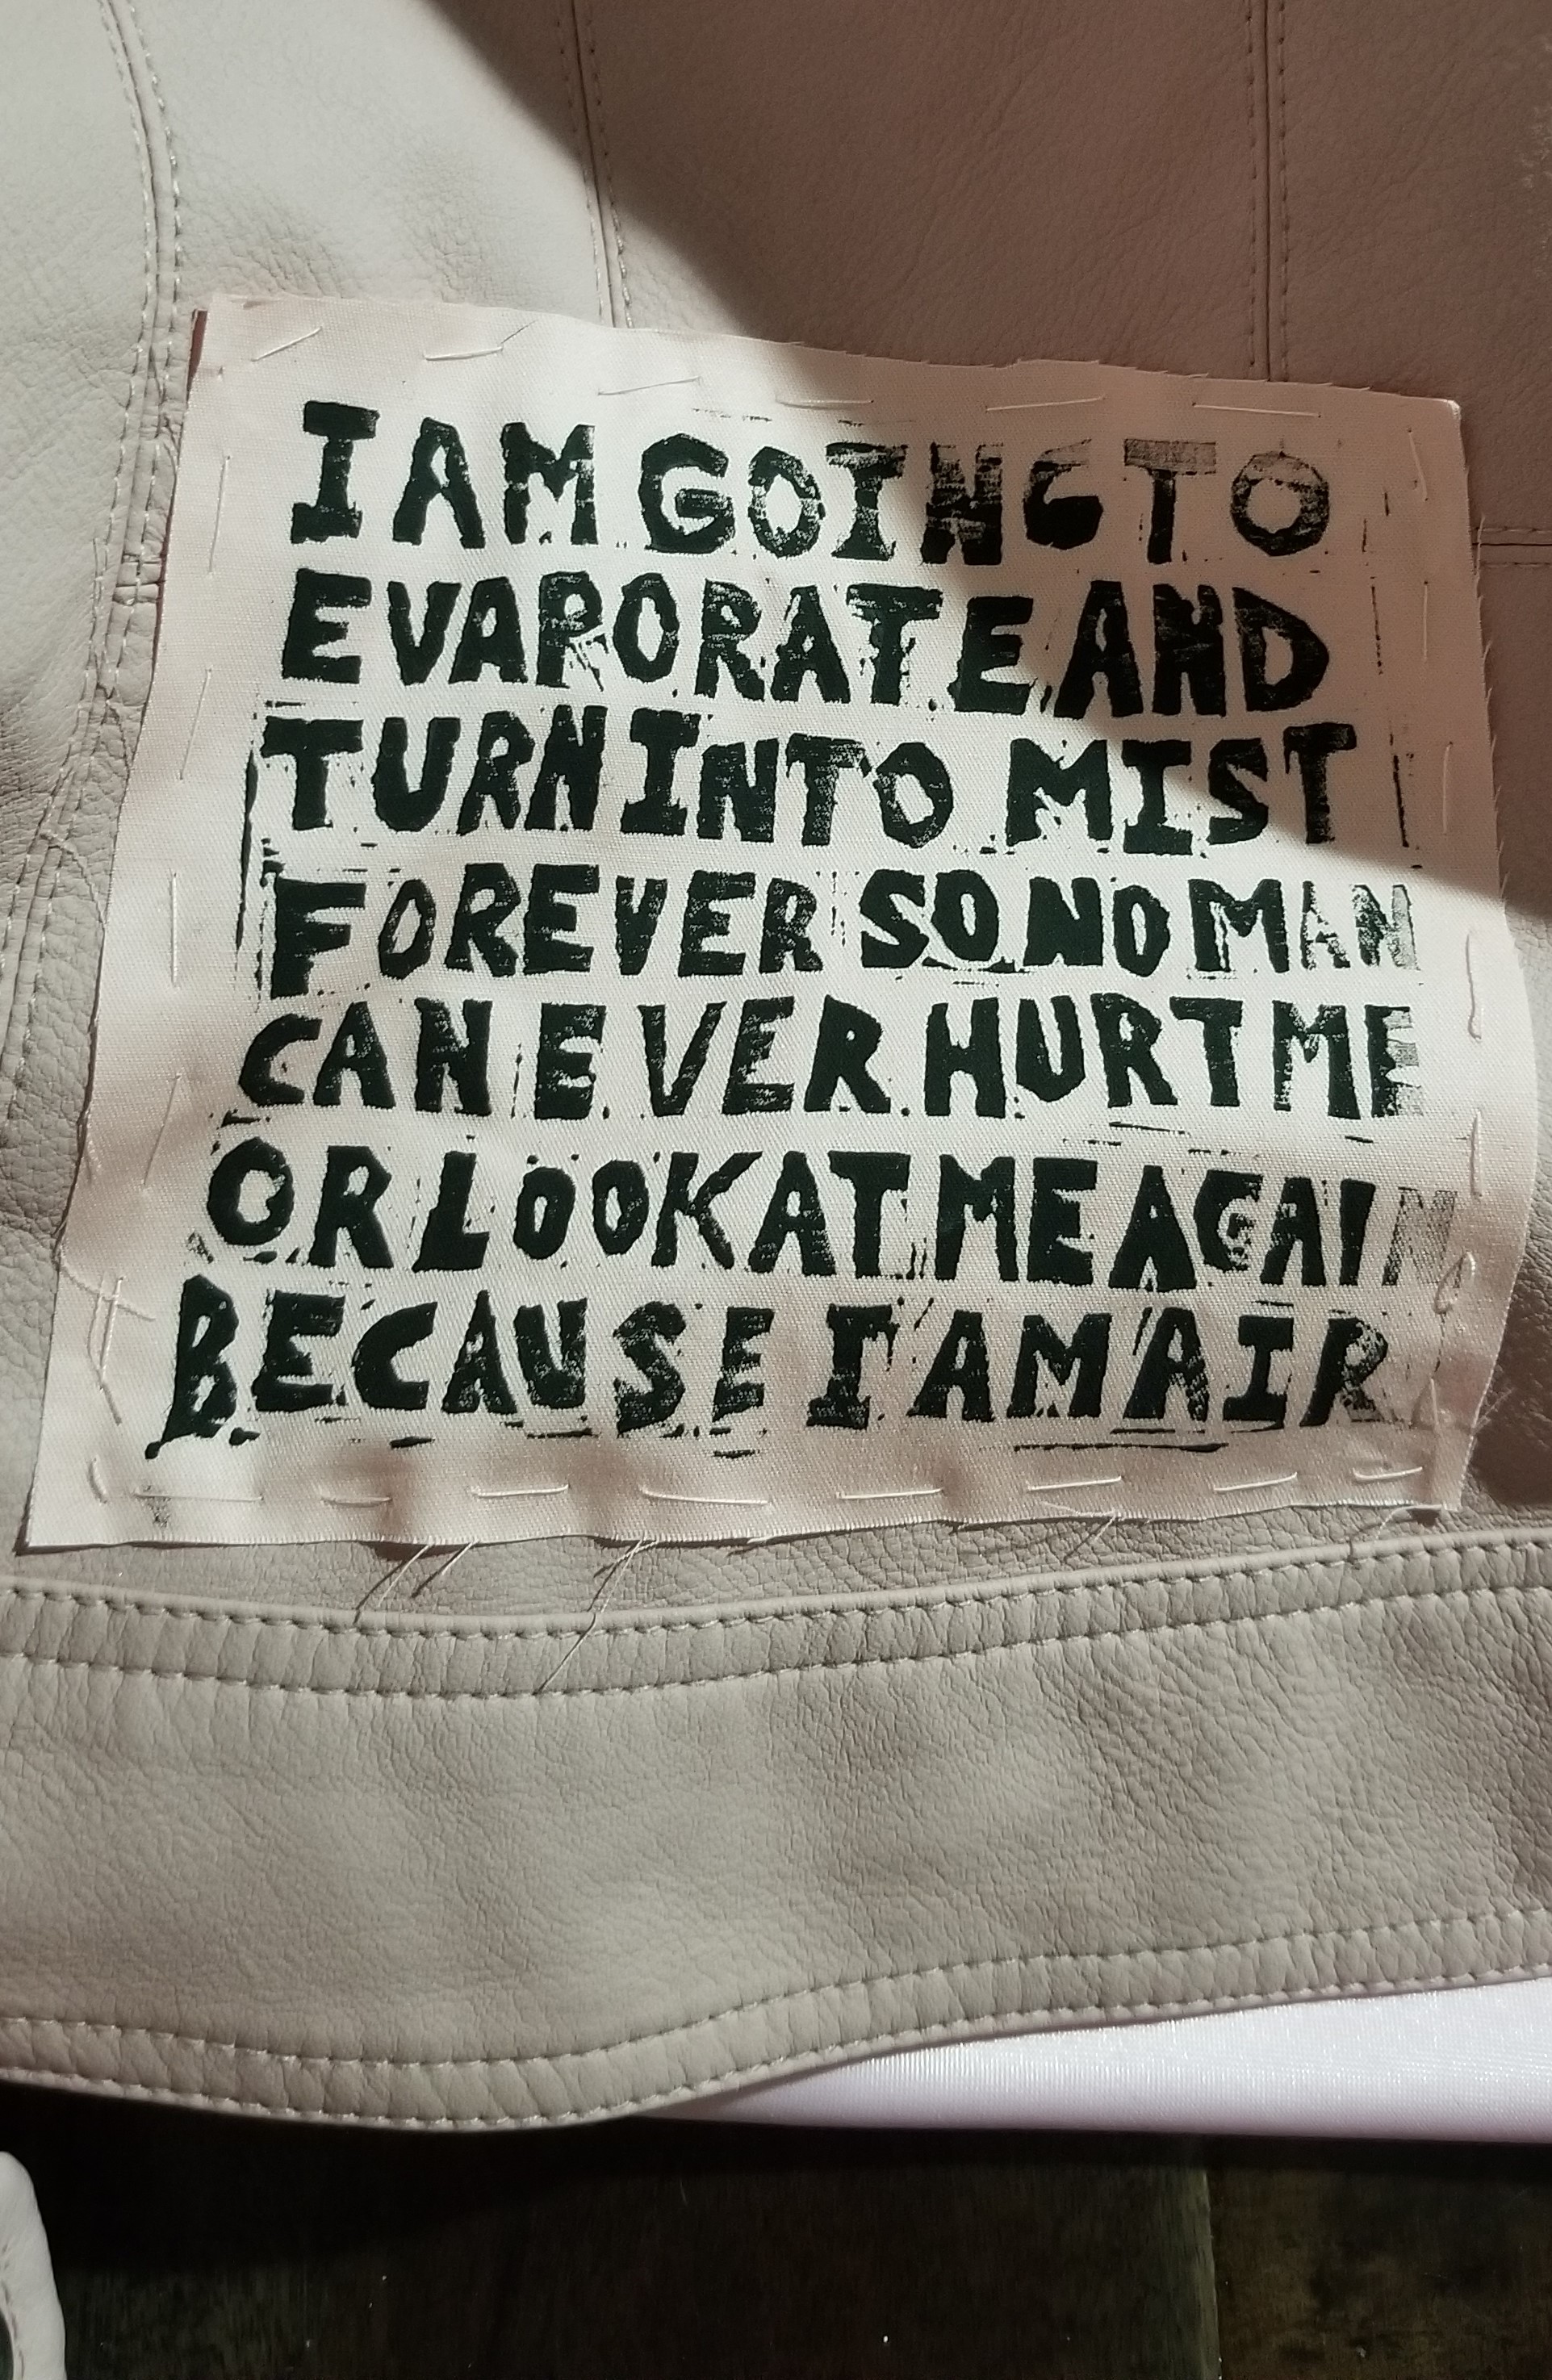 I AM GOING TO
EVAPORATE AND
TURN INTO MIST
FOREVER SO NO MAN
CAN EVER HURT ME
OR LOOK AT ME AGAIN
BECAUSE I AM AIR